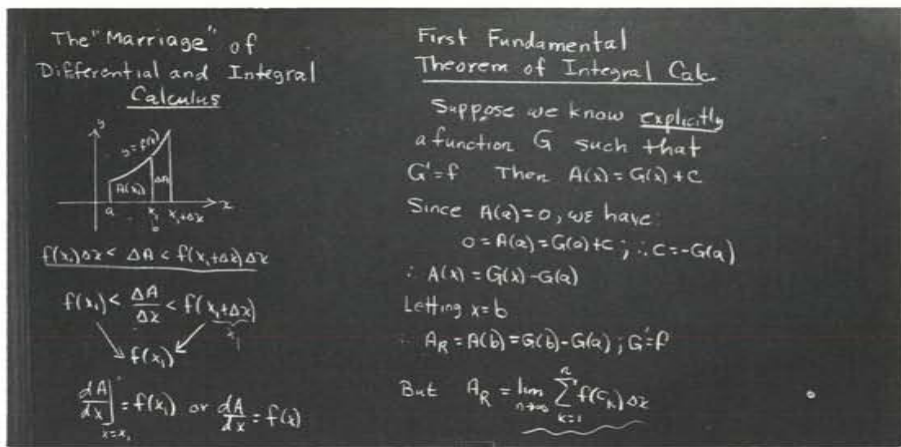 The "Marriage" of
Differential and Integral
Calculus
y
y=f(x)
A(x₁) ΔA
a x₁ x₁+Δx x
b
f(x₁)Δx < ΔA < f(x₁+Δx)Δx
f(x₁) < ΔA/Δx < f(x₁+Δx)
x₁
f(x₁)
dA/dx]ₓ₌ₓ₁ = f(x₁) or dA/dx = f(x)
First Fundamental
Theorem of Integral Calc.
Suppose we know explicitly
a function G such that
G'=f Then A(x)=G(x)+C
Since A(a)=0, we have:
0=A(a)=G(a)+C; ∴C=-G(a)
∴ A(x)=G(x)-G(a)
Letting x=b
∴ A_R=A(b)=G(b)-G(a); G'=f
But A_R = lim n→∞ Σ k=1 n f(c_k) Δx